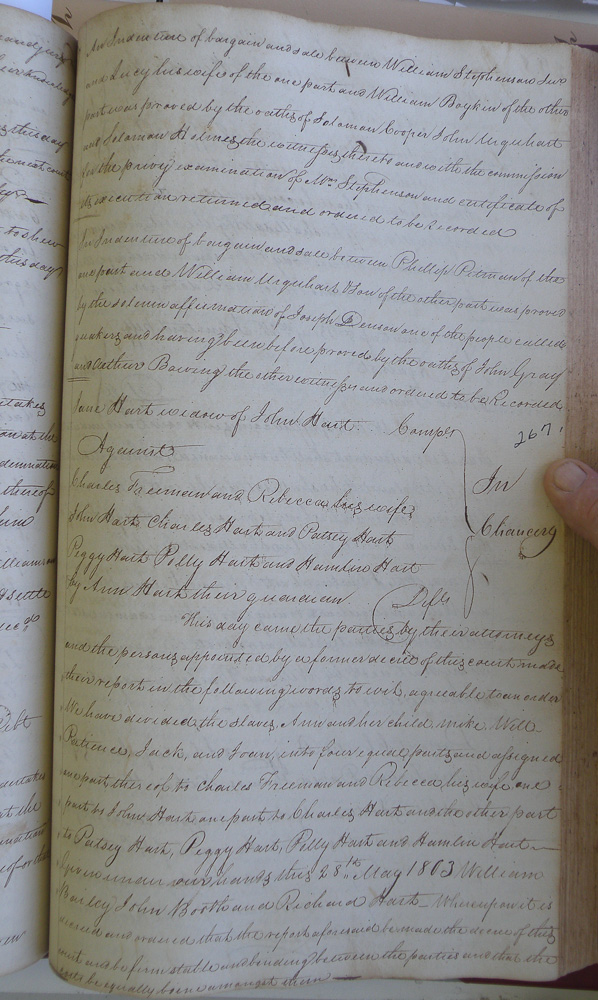 An Indenture of bargain and sale between William Stephenson Junr
and Lucy his wife of the one part and William Boykin of the other
part was proved by the oaths of Solomon Cooper John Urquhart
and Solomon Holmes the witnesses thereto and with the commission
for the privy examination of Mrs Stephenson and certificate of
its execution returned and ordered to be Recorded
An Indenture of bargain and sale between Phillip Pitman of the
one part and William Urquhart & Son of the other part was proved
by the solemn affirmation of Joseph Denson one of the people called
quakers and having been before proved by the oaths of John Gray
and Arthur Bowing the other witnesses and ordered to be Recorded
Jane Hart widow of John Hart Compt
267
Against
In
Charles Freeman and Rebecca his wife
John Hart Charles Hart and Patsey Hart
Chancery
Peggy Hart Polly Hart and Hamlin Hart
by Ann Hart their guardian Defts
This day came the parties by their attorneys
and the persons appointed by a former decree of this court made
their report in the following words to wit, agreeable to an order
We have devided the slaves, Ann and her child mike, Will
Patience, Jack, and Joan, into four equal parts and assigned
one part thereof to Charles Freeman and Rebecca his wife one
part to John Hart one part to Charles Hart and the other part
to Patsey Hart, Peggy Hart, Polly Hart and Hamlin Hart
Given under our hands this 28th May 1803 William
Bailey John Booth and Richard Hart Whereupon it is
decreed and ordered that the report aforesaid be made the decree of this
court and be firm stable and binding between the parties and that the
costs be equally born amongst them